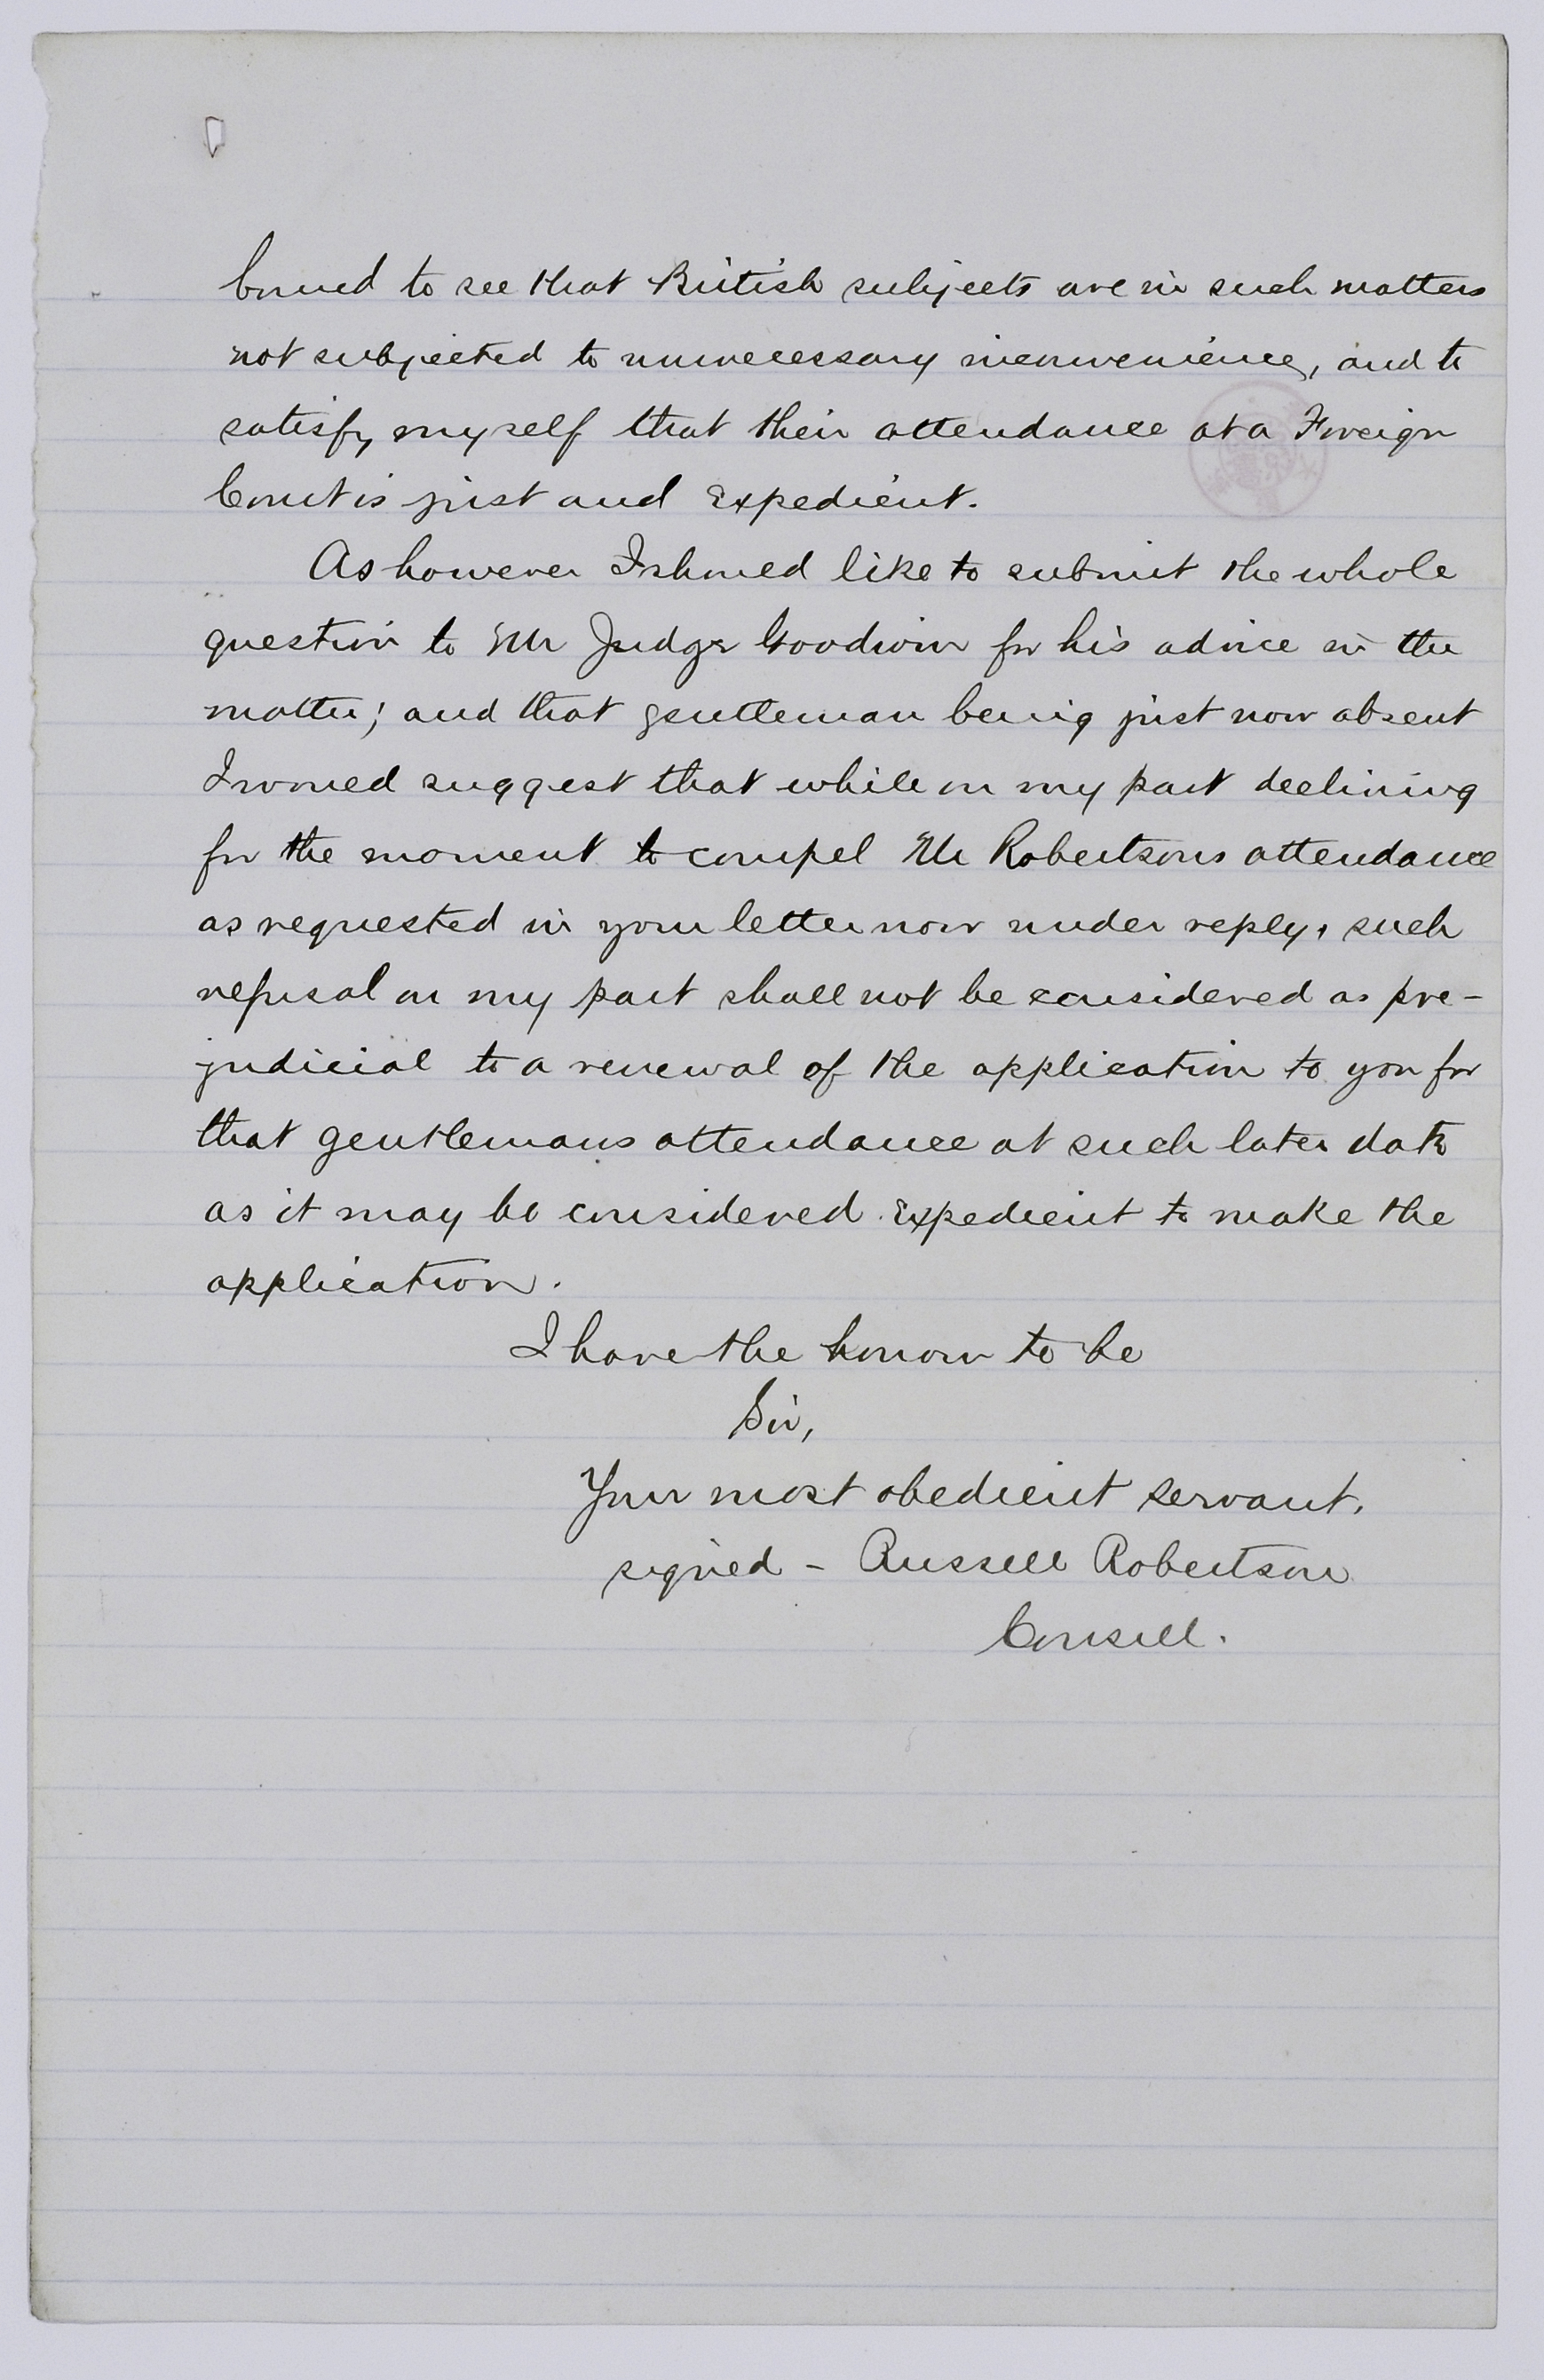 bound to see that British subjects are in such matters
not subjected to unnecessary inconvenience, and to
satisfy myself that their attendance at a Foreign
Court is just and expedient.
As however I should like to submit the whole
question to Mr Judge Goodwin for his advice in the
matter; and that gentleman being just now absent
I would suggest that while on my part declining
for the moment to compel Mr Robertsons attendance
as requested in your letter now under reply, such
refusal on my part shall not be considered as pre-
judicial to a renewal of the application to you for
that gentlemans attendance at such later date
as it may be considered expedient to make the
application.
I have the honour to be
Sir,
Your most obedient servant.
signed - Russell Robertson
Consul.